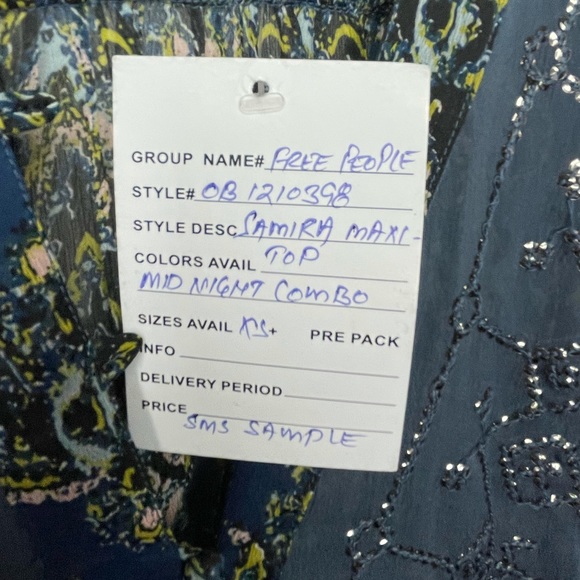 GROUP NAME# FREE PEOPLE
STYLE# OB 1210398
STYLE DESC SAMIRA MAXI-
COLORS AVAIL TOP
MIDNIGHT COMBO
SIZES AVAIL XS+ PRE PACK
INFO
DELIVERY PERIOD
PRICE
SMS SAMPLE